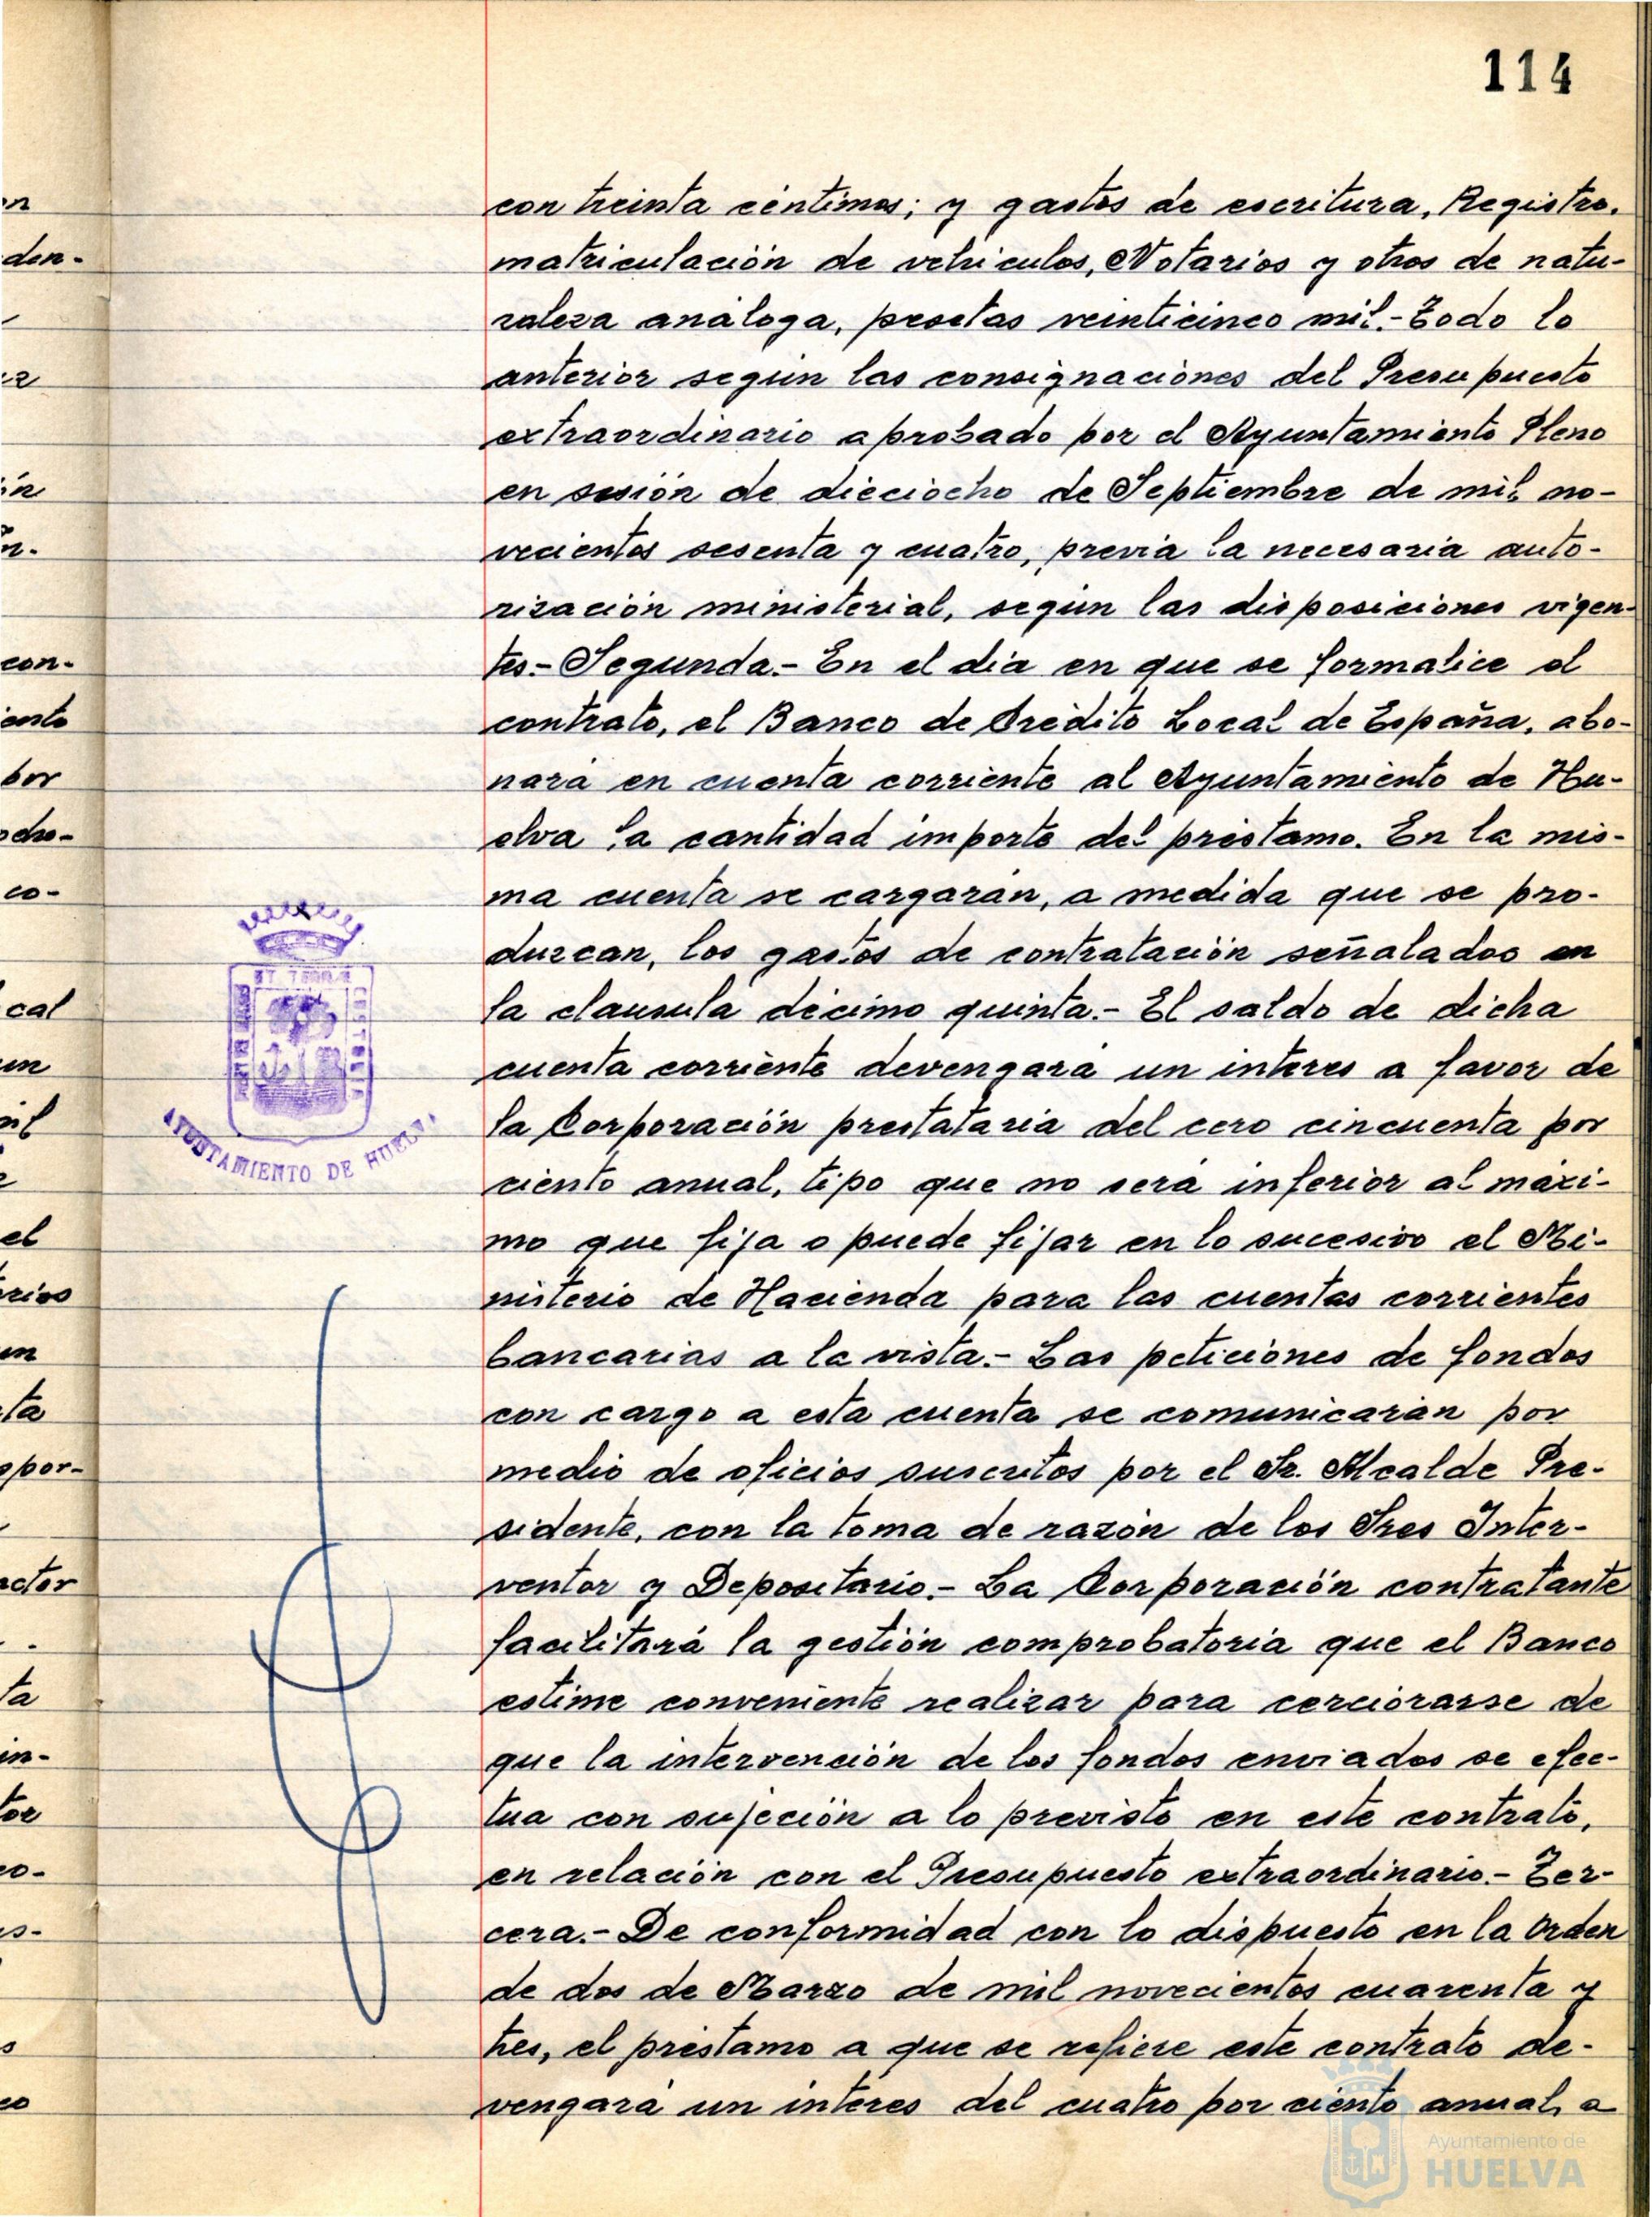 114
con treinta céntimos; y gastos de escritura, Registro,
matriculación de vehiculos, Notarios y otros de natu-
raleza análoga, pesetas veinticinco mil.- Todo lo
anterior según las consignaciones del Presupuesto
extraordinario aprobado por el Ayuntamiento Pleno
en sesión de dieciocho de Septiembre de mil no-
vecientos sesenta y cuatro, previa la necesaria auto-
rización ministerial, según las disposiciones vigen-
tes.- Segunda.- En el dia en que se formalice el
contrato, el Banco de Crédito Local de España, abo-
nará en cuenta corriente al Ayuntamiento de Hu-
elva la cantidad importe del préstamo. En la mis-
ma cuenta se cargarán, a medida que se pro-
duzcan, los gastos de contratación señalados en
la clausula décimo quinta.- El saldo de dicha
cuenta corriente devengará un interes a favor de
la Corporación prestataria del cero cincuenta por
ciento anual, tipo que no será inferior al máxi-
mo que fija o puede fijar en lo sucesivo el Mi-
nisterio de Hacienda para las cuentas corrientes
bancarias a la vista.- Las peticiones de fondos
con cargo a esta cuenta se comunicarán por
medio de oficios suscritos por el Sr. Alcalde Pre-
sidente, con la toma de razón de los Sres Inter-
ventor y Depositario.- La Corporación contratante
facilitará la gestión comprobatoria que el Banco
estime conveniente realizar para cerciorarse de
que la intervención de los fondos enviados se efec-
tua con sujeción a lo previsto en este contrato,
en relación con el Presupuesto extraordinario.- Ter-
cera.- De conformidad con lo dispuesto en la Orden
de dos de Marzo de mil novecientos cuarenta y
tres, el préstamo a que se refiere este contrato de-
vengará un interes del cuatro por ciento anual, a
AYUNTAMIENTO DE HUELVA
Ayuntamiento de
HUELVA